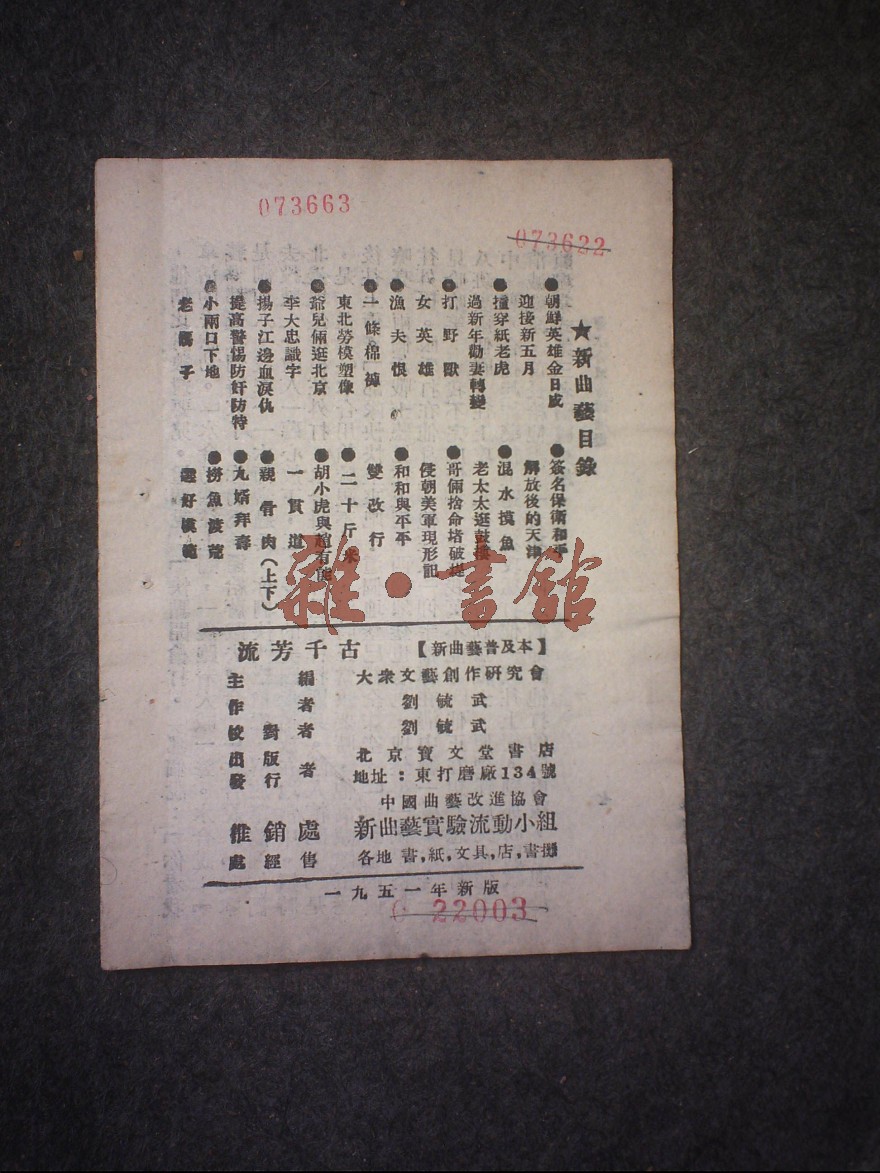 073663
073622
★新曲藝目錄
●朝鮮英雄金日成
迎接新五月
●撞穿紙老虎
過新年勸妻轉變
●打野獸
女英雄
●漁夫恨
●一條棉褲
東北勞模塑像
●爺兒倆逛北京
李大忠識字
●揚子江邊血淚仇
提高警惕防奸防特
●小兩口下地
老騙子
●簽名保衛和平
解放後的天津
●混水摸魚
老太太逛鼓樓
●哥倆捨命堵破堤
侵朝美軍現形記
●和和與平平
雙改行
●二十斤米
胡小虎與趙有能
一貫道
●親骨肉(上下)
●九婿拜壽
●撈魚渡荒
選好模範
雜·書館
流芳千古
【新曲藝普及本】
主編者 大衆文藝創作研究會
作者 劉毓武
校對者 劉毓武
出版者 北京寶文堂書店
發行者 地址:東打磨廠134號
中國曲藝改進協會
推銷處 新曲藝實驗流動小組
經售處 各地書,紙,文具,店,書攤
一九五一年新版
C 22003